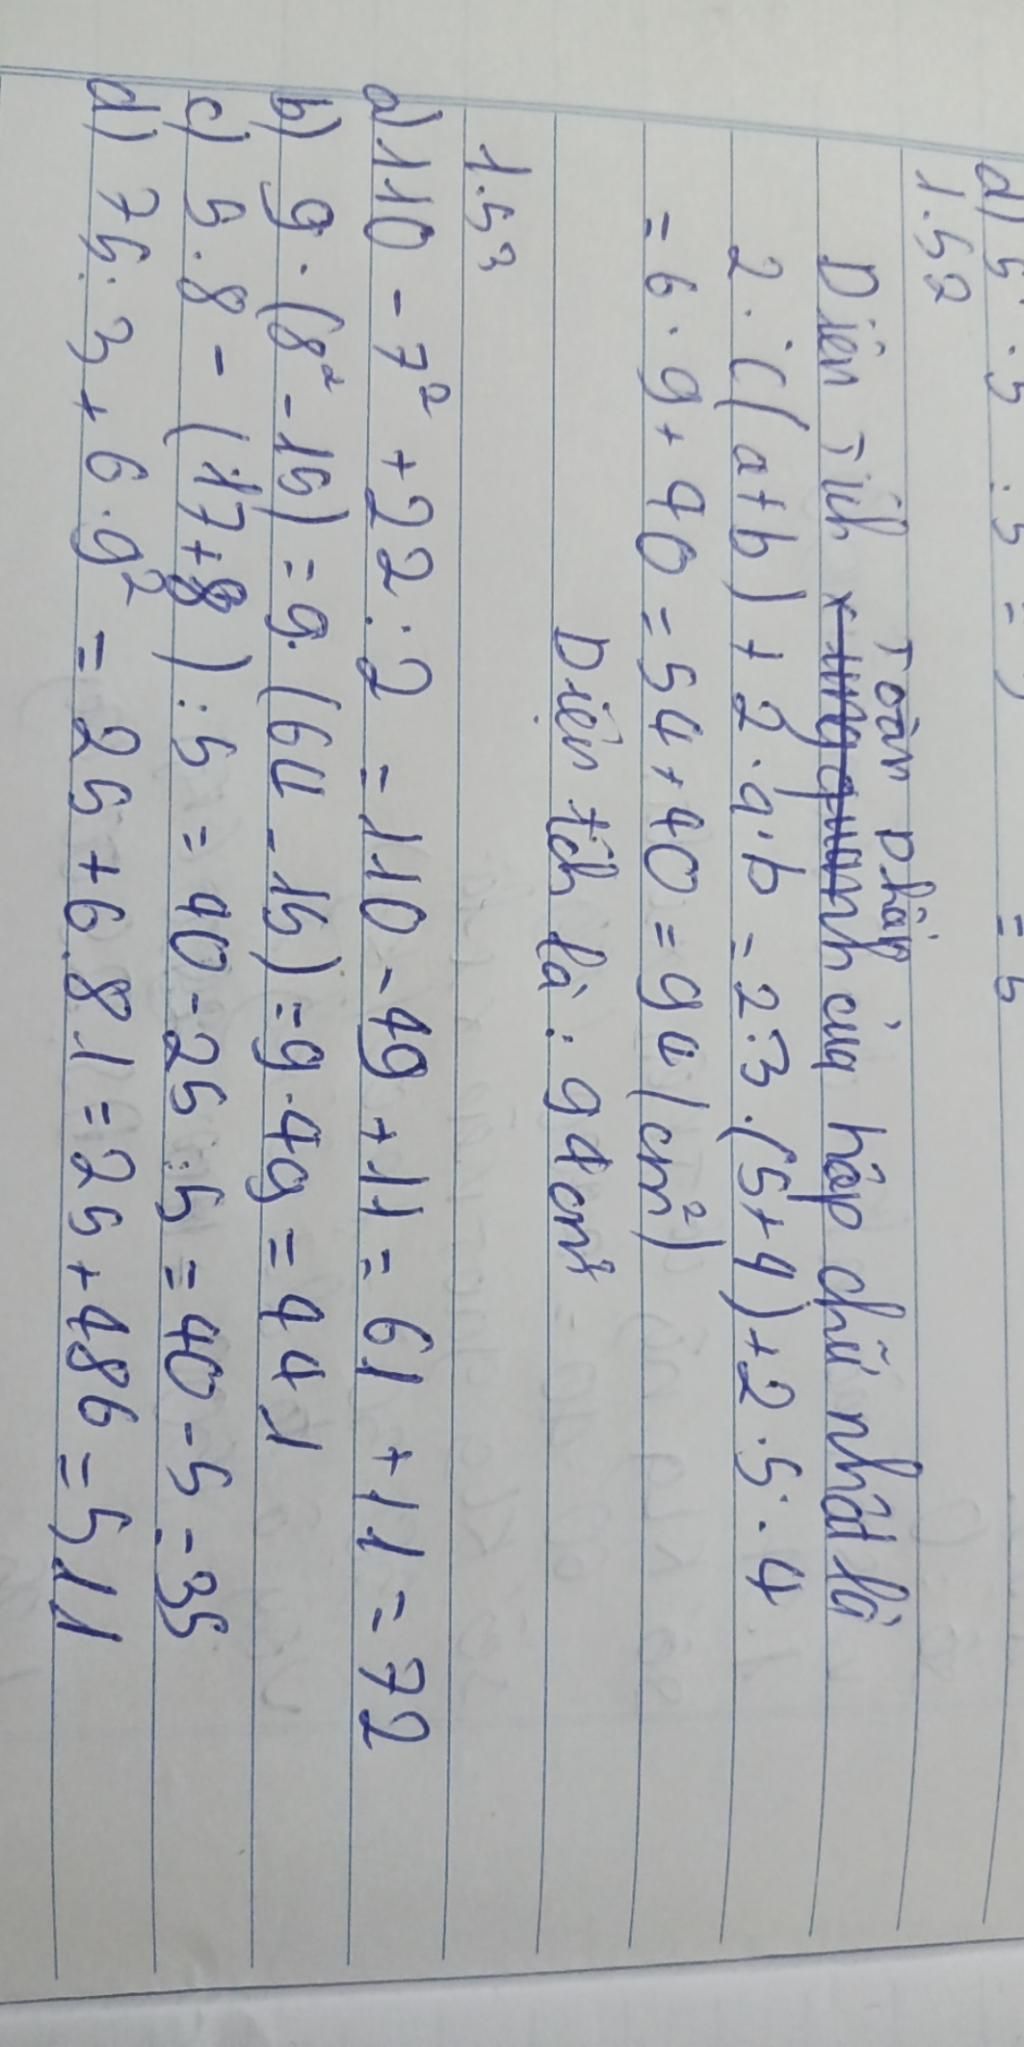 d) 5 . 5 . 5 = 5
1.52
Toàn phần
Diện Tích xung quanh của hộp chữ nhật là
2 . c(a+b) + 2 . a . b = 2 . 3 . (5+4) + 2 . 5 . 4
= 6 . 9 + 40 = 54 + 40 = 94 (cm²)
Diện tích là : 94 cm²
1.53
a) 110 - 7² + 22 : 2 = 110 - 49 + 11 = 61 + 11 = 72
b) 9 . (8² - 15) = 9 . (64 - 15) = 9 . 49 = 441
c) 5 . 8 - (17 + 8) : 5 = 40 - 25 : 5 = 40 - 5 = 35
d) 75 : 3 + 6 . 9² = 25 + 6 . 81 = 25 + 486 = 511